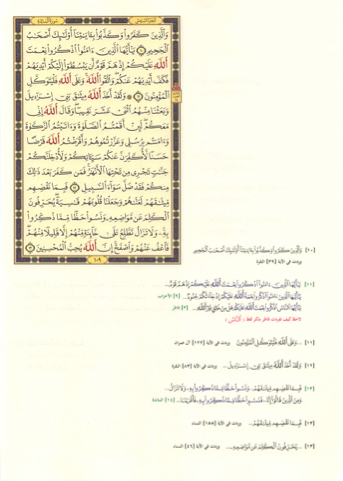 الجزء السادس
سورة المائدة
وَالَّذِينَ كَفَرُوا وَكَذَّبُوا بِآيَاتِنَا أُولَٰئِكَ أَصْحَابُ
الْجَحِيمِ ۝ يَا أَيُّهَا الَّذِينَ آمَنُوا اذْكُرُوا نِعْمَتَ
اللَّهِ عَلَيْكُمْ إِذْ هَمَّ قَوْمٌ أَن يَبْسُطُوا إِلَيْكُمْ أَيْدِيَهُمْ
فَكَفَّ أَيْدِيَهُمْ عَنكُمْ وَاتَّقُوا اللَّهَ وَعَلَى اللَّهِ فَلْيَتَوَكَّلِ
الْمُؤْمِنُونَ ۝ وَلَقَدْ أَخَذَ اللَّهُ مِيثَاقَ بَنِي إِسْرَائِيلَ
وَبَعَثْنَا مِنْهُمُ اثْنَيْ عَشَرَ نَقِيبًا وَقَالَ اللَّهُ إِنِّي
مَعَكُمْ لَئِنْ أَقَمْتُمُ الصَّلَاةَ وَآتَيْتُمُ الزَّكَاةَ
وَآمَنتُم بِرُسُلِي وَعَزَّرْتُمُوهُمْ وَأَقْرَضْتُمُ اللَّهَ قَرْضًا
حَسَنًا لَّأُكَفِّرَنَّ عَنكُمْ سَيِّئَاتِكُمْ وَلَأُدْخِلَنَّكُمْ
جَنَّاتٍ تَجْرِي مِن تَحْتِهَا الْأَنْهَارُ فَمَن كَفَرَ بَعْدَ ذَٰلِكَ
مِنكُمْ فَقَدْ ضَلَّ سَوَاءَ السَّبِيلِ ۝ فَبِمَا نَقْضِهِم
مِّيثَاقَهُمْ لَعَنَّاهُمْ وَجَعَلْنَا قُلُوبَهُمْ قَاسِيَةً يُحَرِّفُونَ
الْكَلِمَ عَن مَّوَاضِعِهِ وَنَسُوا حَظًّا مِّمَّا ذُكِّرُوا
بِهِ وَلَا تَزَالُ تَطَّلِعُ عَلَىٰ خَائِنَةٍ مِّنْهُمْ إِلَّا قَلِيلًا مِّنْهُمْ
فَاعْفُ عَنْهُمْ وَاصْفَحْ إِنَّ اللَّهَ يُحِبُّ الْمُحْسِنِينَ ۝
١٠٩
[١٠] وَالَّذِينَ كَفَرُوا وَكَذَّبُوا بِآيَاتِنَا أُولَٰئِكَ أَصْحَابُ الْجَحِيمِ
وردت في الآية [٣٩] البقرة
[١١] يَا أَيُّهَا الَّذِينَ آمَنُوا اذْكُرُوا نِعْمَتَ اللَّهِ عَلَيْكُمْ إِذْ هَمَّ قَوْمٌ...
يَا أَيُّهَا الَّذِينَ آمَنُوا اذْكُرُوا نِعْمَةَ اللَّهِ عَلَيْكُمْ إِذْ جَاءَتْكُمْ جُنُودٌ... [٩] الأحزاب
يَا أَيُّهَا النَّاسُ اذْكُرُوا نِعْمَتَ اللَّهِ عَلَيْكُمْ هَلْ مِنْ خَالِقٍ غَيْرُ اللَّهِ... [٣] فاطر
[١١] ...وَعَلَى اللَّهِ فَلْيَتَوَكَّلِ الْمُؤْمِنُونَ وردت في الآية [١٢٢] آل عمران
[١٢] وَلَقَدْ أَخَذَ اللَّهُ مِيثَاقَ بَنِي إِسْرَائِيلَ... وردت في الآية [٨٣] البقرة
[١٣] فَبِمَا نَقْضِهِم مِّيثَاقَهُمْ... وَنَسُوا حَظًّا مِّمَّا ذُكِّرُوا بِهِ وَلَا تَزَالُ...
وَمِنَ الَّذِينَ قَالُوا إِنَّا... فَنَسُوا حَظًّا مِّمَّا ذُكِّرُوا بِهِ فَأَغْرَيْنَا... [١٤] المائدة
[١٣] فَبِمَا نَقْضِهِم مِّيثَاقَهُمْ... وردت في الآية [١٥٥] النساء
[١٣] ...يُحَرِّفُونَ الْكَلِمَ عَن مَّوَاضِعِهِ... وردت في الآية [٤٦] النساء